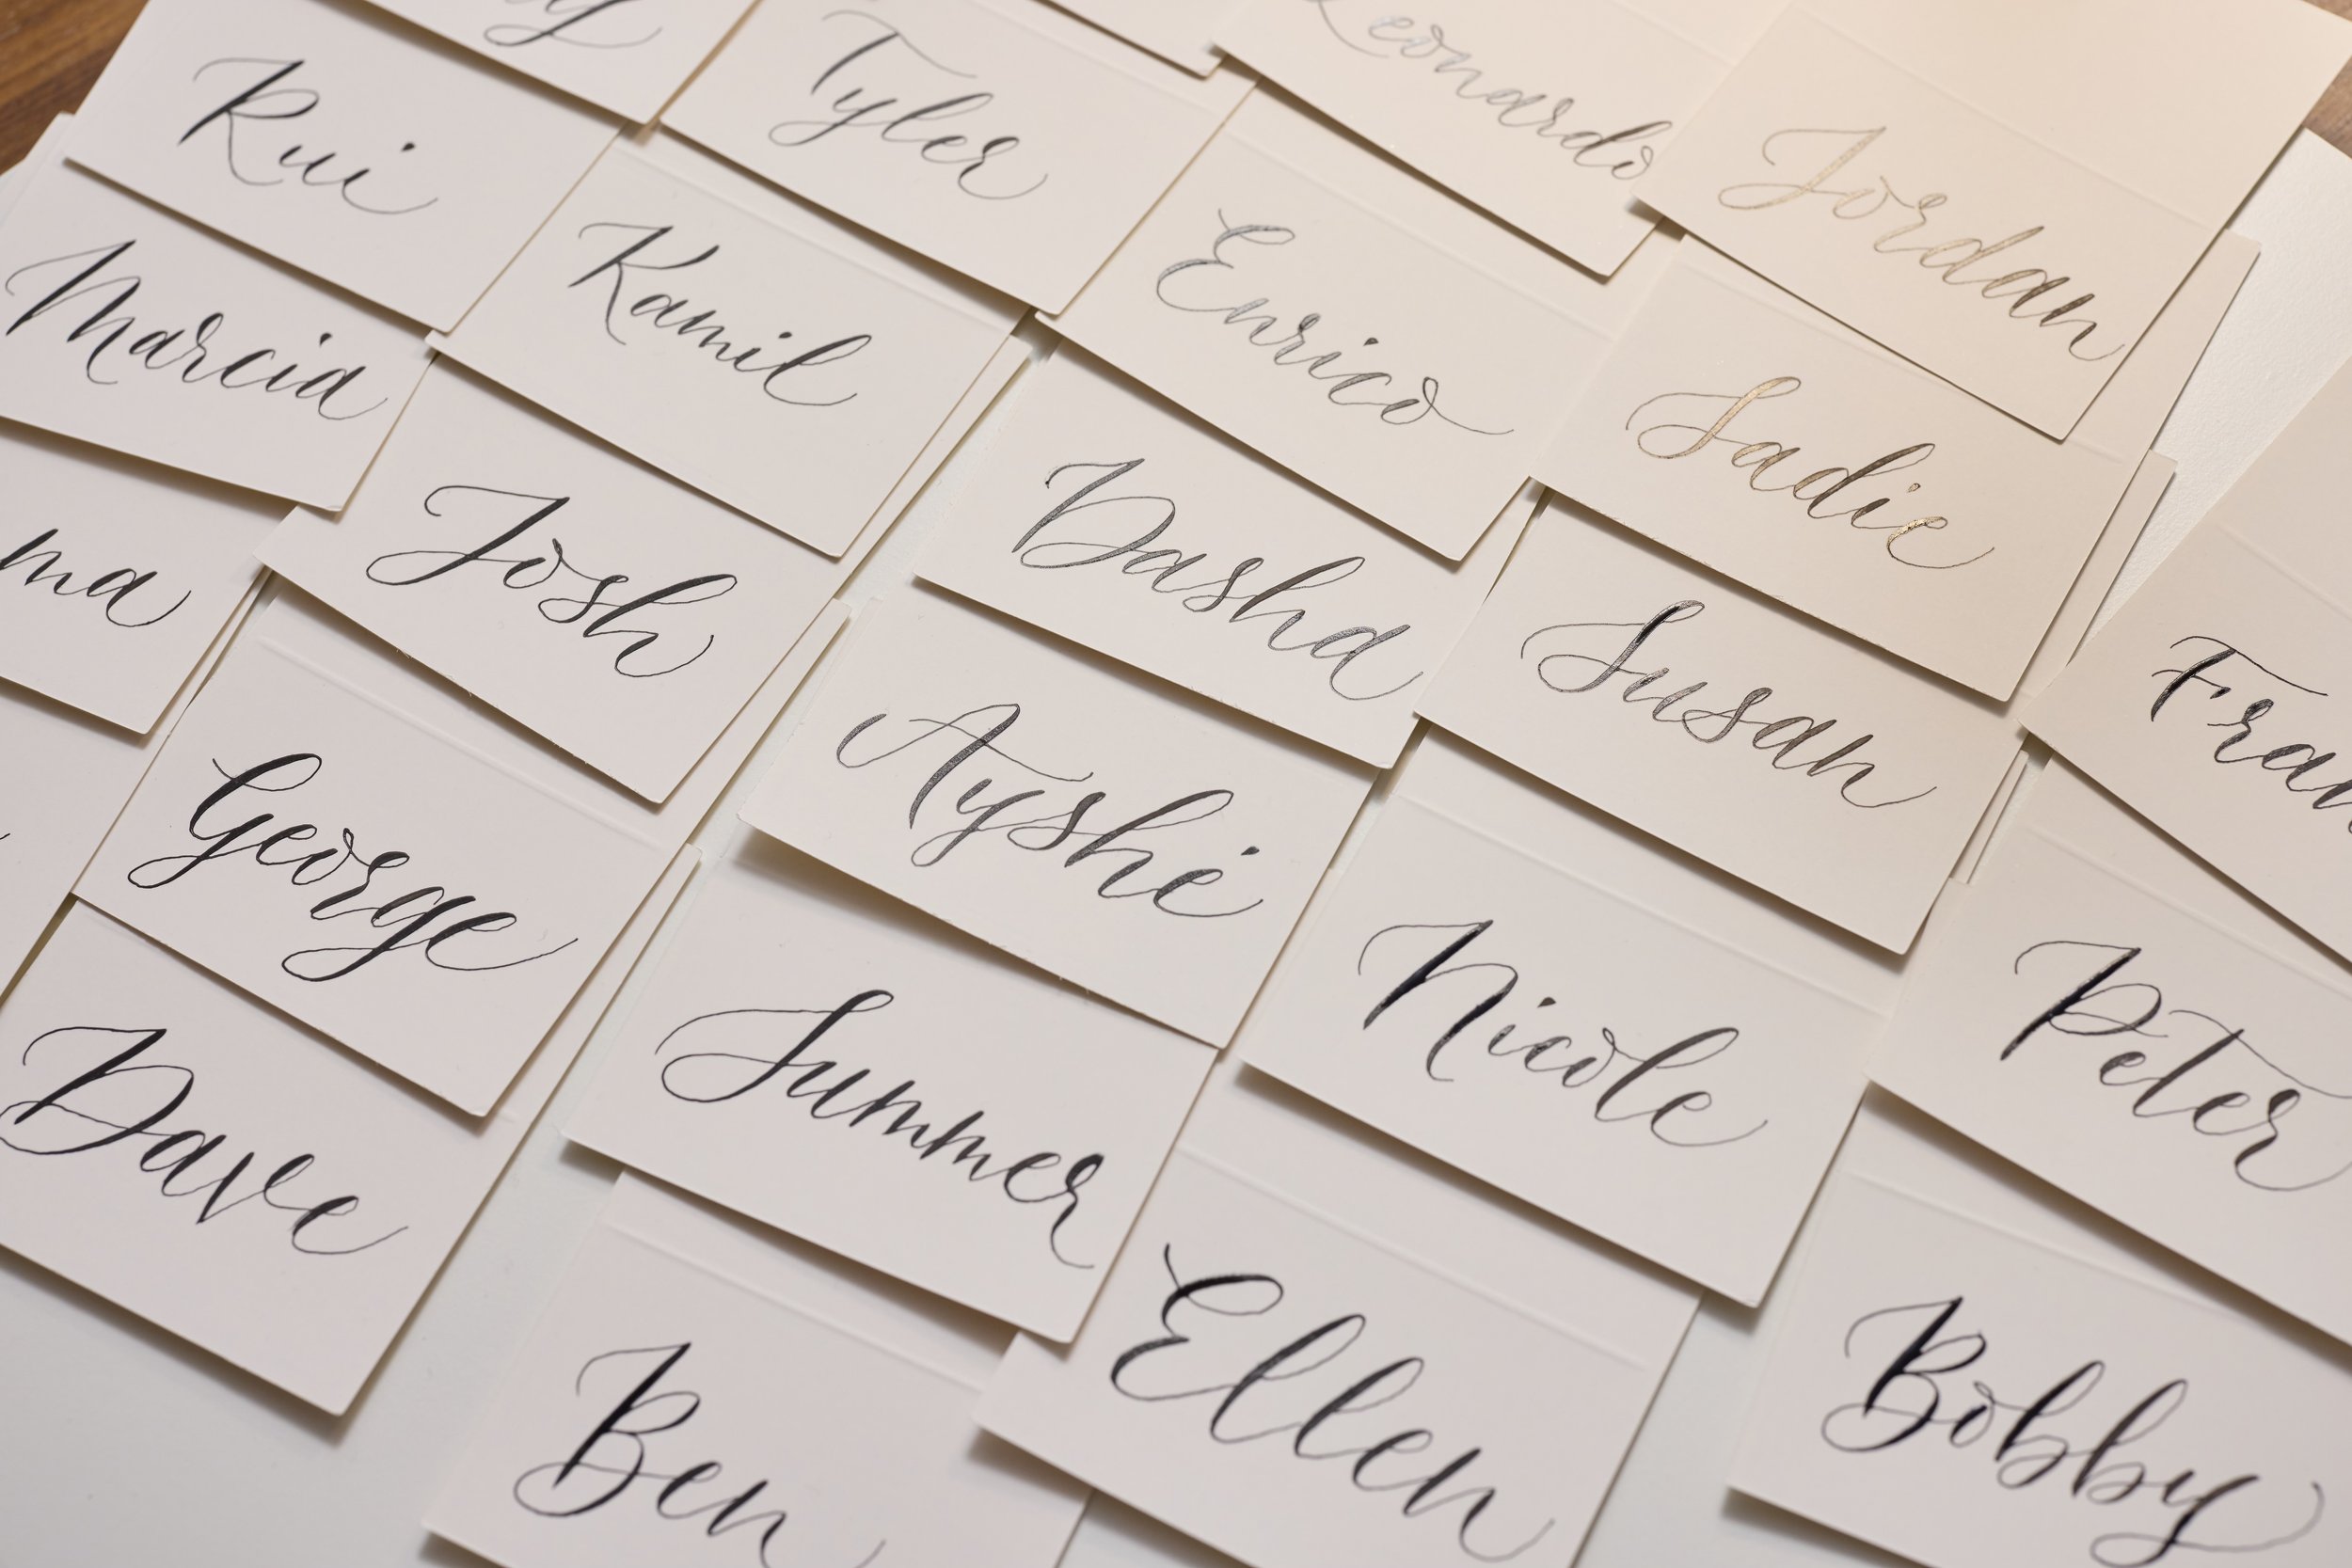 Rui
Tyler
Leonardo
Jordan
Marcia
Kamil
Enrico
Sadie
ma
Josh
Dasha
Susan
Fran
George
Ayshe
Nicole
Peter
Dave
Summer
Ellen
Bobby
Ben